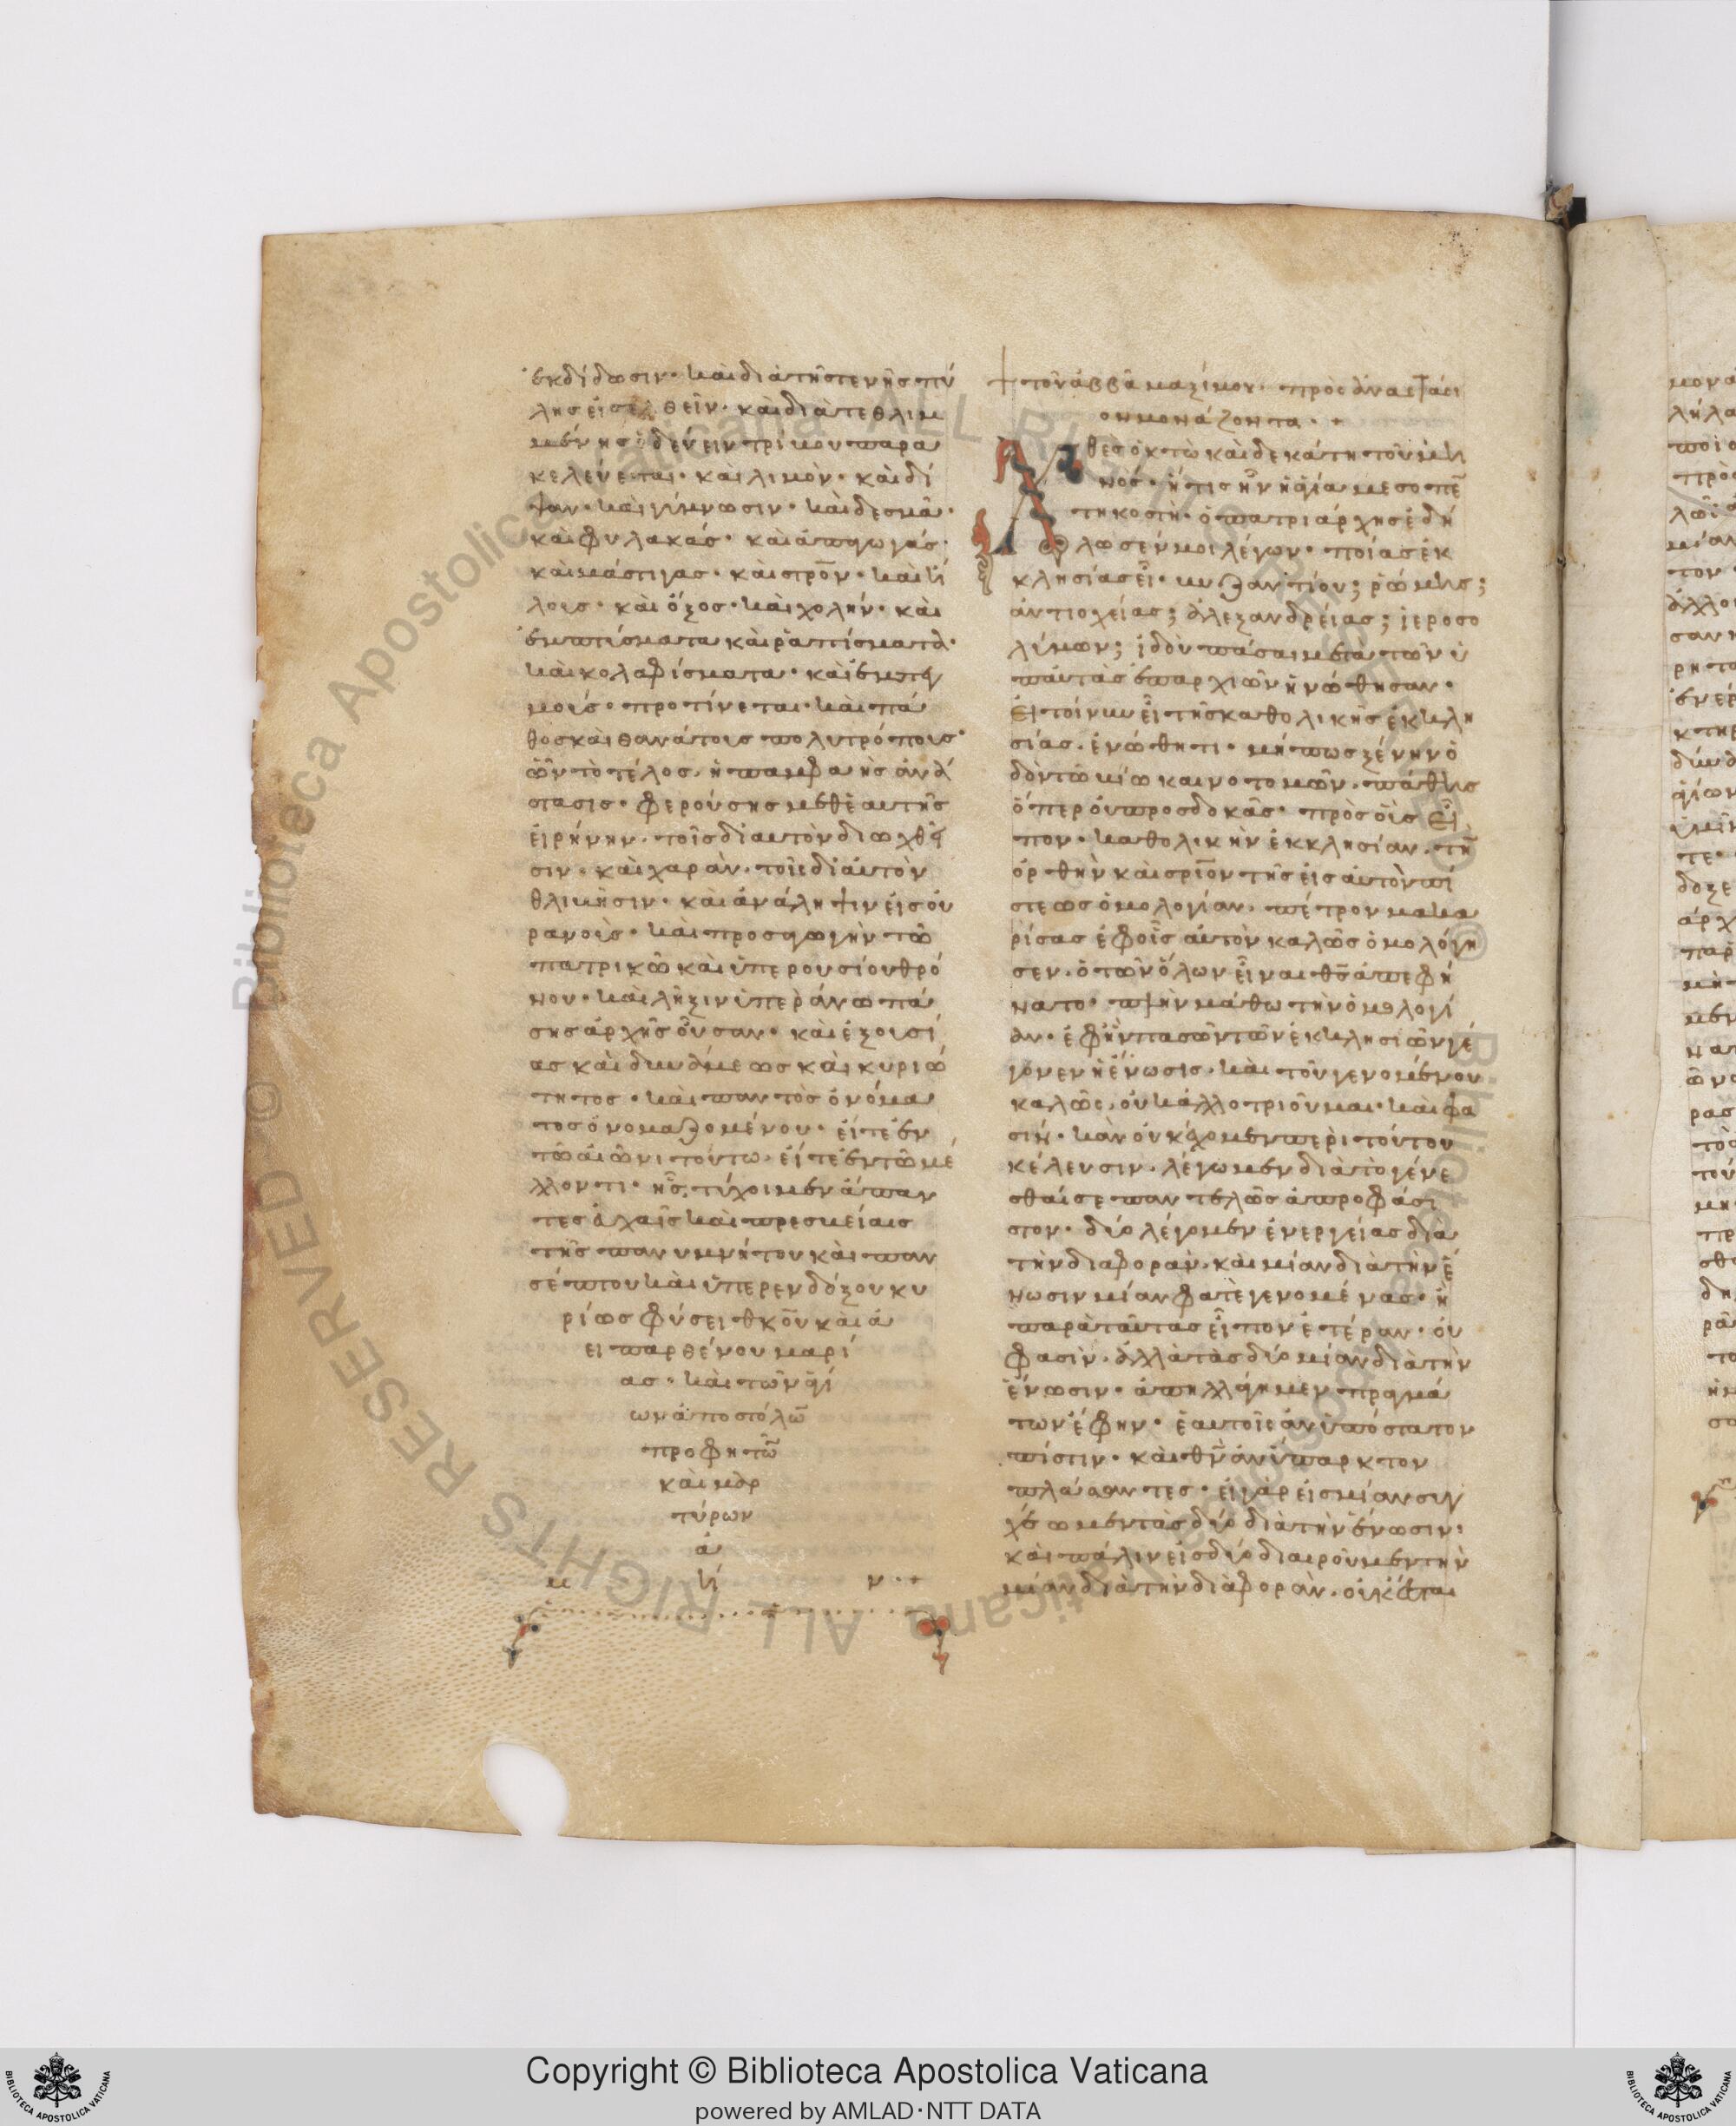 ἐκδίδωσιν· καὶ διὰ τῆς στενῆς πύ
λης εἰσελθεῖν· καὶ διὰ τεθλιμ
μένης ὁδεύειν τρίβου παρα
κελεύεται· καὶ λιμὸν· καὶ δί
ψαν· καὶ γύμνωσιν· καὶ δεσμὰ·
καὶ φυλακάς· καὶ ἀπαγωγάς·
καὶ μάστιγας· καὶ στρον· καὶ ἥ
λους· καὶ ὄξος· καὶ χολήν· καὶ
ἐμπτύσματα καὶ ῥαπίσματα·
καὶ κολαφίσματα· καὶ ἐμπαιγ
μούς· προτίνεται· καὶ πά
θος καὶ θανάτους πολυτρόπους·
ὧν τὸ τέλος, ἡ παμφαὴς ἀνά
στασις· φερούσης μεθ' ἑαυτῆς
εἰρήνην, τοῖς δι' αυτὸν διωχθεῖ
σιν· καὶ χαρὰν, τοῖς δι' αὐτὸν
θλιβεῖσιν· καὶ ἀνάληψιν εἰς οὐ
ρανοὺς· καὶ προσαγωγὴν τῶ
πατρικῶ καὶ ὑπερουσίου θρό
νου· καὶ λῆξιν ὑπεράνω πά
σης ἀρχῆς οὖσαν· καὶ ἐξουσί
ας καὶ δυνάμεως καὶ κυριό
τητος· καὶ παντὸς ὀνόμα
τος ὀνομαζομένου· εἴτε ἐν
τῶ αἰῶνι τούτω· εἴτε ἐν τῶ μέ
λλοντι· ἧς τύχοιμεν ἅπαν
τες εὐχαῖς καὶ πρεσβείαις
τῆς πανυμνήτου καὶ παν
σέπτου καὶ ὑπερενδόξου κυ
ρίως φύσει θκου καὶ ἀ
ειπαρθένου μαρί
ας· καὶ τῶν ἁγί
ων ἀποστόλω
προφητῶ
καὶ μαρ
τύρων
ἀ
μ ή ν··+
+ τοῦ ἀββᾶ μαξίμου· πρὸς ἀναστάσι
ον μονάζοντα· +
Χθὲς ὀκτὼ καὶ δεκάτη τοῦ μη
νός· ἥτις ἦν ἡ ἁγία μεσοπε
τηκοστὴ· ὁ πατριάρχης ἐδή
λωσέν μοι λέγων· ποίας ἐκ
κλησίας εἶ· βυζαντίου; ῥώμης;
ἀντιοχείας; ἀλεξανδρείας; ἱεροσο
λύμων; ἰδοὺ πᾶσαι μετὰ τῶν ὑ
π' αὐτὰς ἐπαρχιῶν ἡνώθησαν·
εἰ τοίνυν εἶ τῆς καθολικῆς ἐκκλη
σίας, ἑνώθητι· μήπως ξένην ὁ
δὸν τῶ βίω καινοτομῶν, πάθης
ὅπερ οὐ προσδοκᾶς· πρὸς οὓς εἶ
πον· καθολικὴν ἐκκλησίαν, τὴ
ὀρθὴν καὶ σριον τῆς εἰς αὐτὸν πί
στεως ὁμολογίαν, πέτρον μακα
ρίσας ἐφ' οἷς αὐτὸν καλῶς ὁμολόγη
σεν, ὁ τῶν ὅλων εἶναι θς ἀπεφή
νατο· πλὴν μάθω τὴν ὁμολογί
αν· ἐφ' ἣν πασῶν τῶν ἐκκλησιῶν γέ
γονεν ἡ ἕνωσις· καὶ τοῦ γενομένου
καλῶς, οὐκ ἀλλοτριοῦμαι· καὶ φα
σίν· κἂν οὐκ ἔχομεν περὶ τούτου
κέλευσιν, λέγωμεν διὰ τὸ γένε
σθαί σε παντελῶς ἀπροφάσι
στον· δύο λέγομεν ἐνεργείας διὰ
τὴν διαφορὰν, καὶ μίαν διὰ τὴν ἕ
νωσιν μίαν φατὲ γενομένας· ἢ
παρὰ ταύτας εἶπον ἑτέραν· οὔ
φασὶν· ἀλλὰ τὰς δύο μίαν διὰ τὴν
ἕνωσιν· ἀπηλλάγημεν πραγμά
των ἔφην· ἑαυτοῖς ἀνυπόστατον
πίστιν· καὶ θν ἀνύπαρκτον
πλάσαντες· εἰ γὰρ εἰς μίαν συγ
χέωμεν τὰς δύο διὰ τὴν ἕνωσιν·
καὶ πάλιν εἰς δύο διαιροῦμεν τὴν
μίαν διὰ τὴν διαφορὰν, οὐκ ἔσται
Copyright © Biblioteca Apostolica Vaticana
powered by AMLAD·NTT DATA